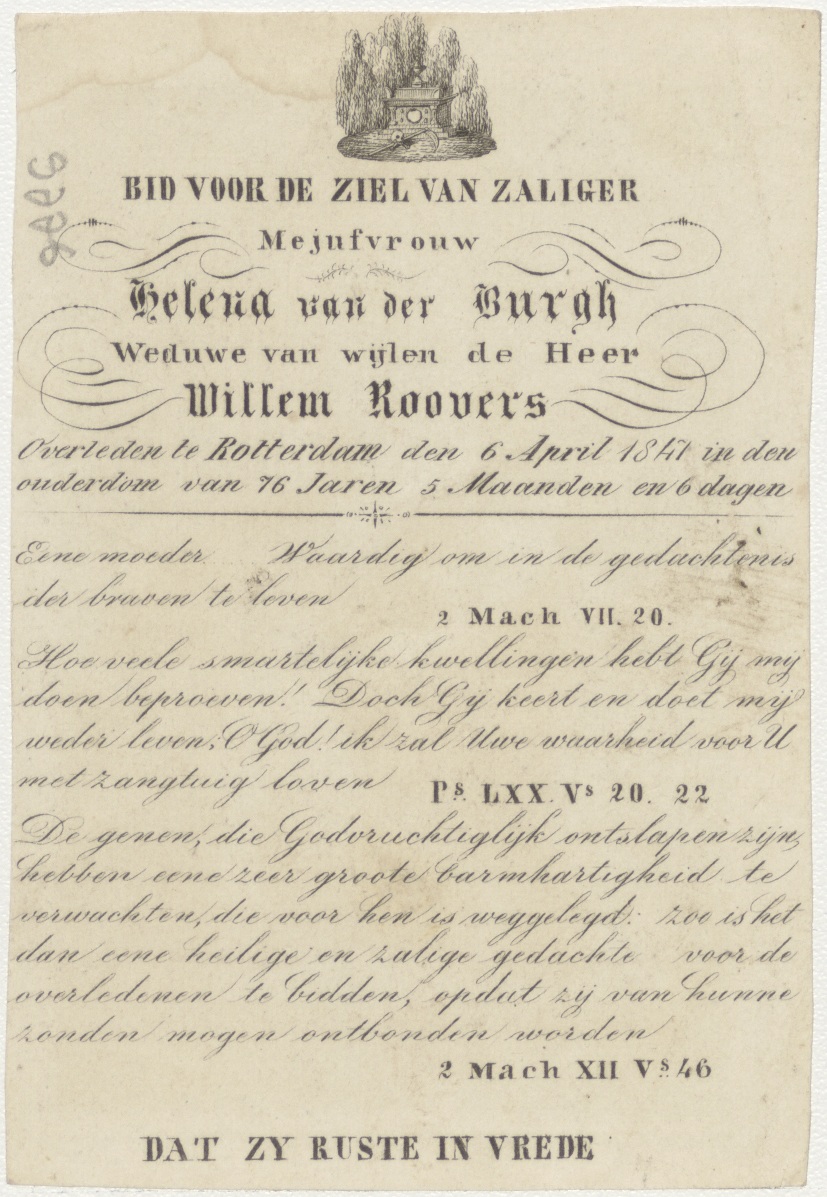 BID VOOR DE ZIEL VAN ZALIGER
Mejufvrouw
Helena van der Burgh
Weduwe van wijlen de Heer
Willem Roovers
Overleden te Rotterdam den 6 April 1847 in den
ouderdom van 76 Jaren 5 Maanden en 6 dagen
Eene moeder Waardig om in de gedachtenis
der braven te leven
2 Mach VII. 20.
Hoe veele smartelijke kwellingen hebt Gij mij
doen beproeven! Doch Gij keert en doet mij
weder leven; O God! ik zal Uwe waarheid voor U
met zangtuig loven
Ps. LXX. Vs 20. 22
De genen, die Godvruchtiglijk ontslapen zijn,
hebben eene zeer groote barmhartigheid te
verwachten, die voor hen is weggelegd: zoo is het
dan eene heilige en zalige gedachte voor de
overledenen te bidden, opdat zij van hunne
zonden mogen ontbonden worden
2 Mach XII Vs. 46
DAT ZY RUSTE IN VREDE